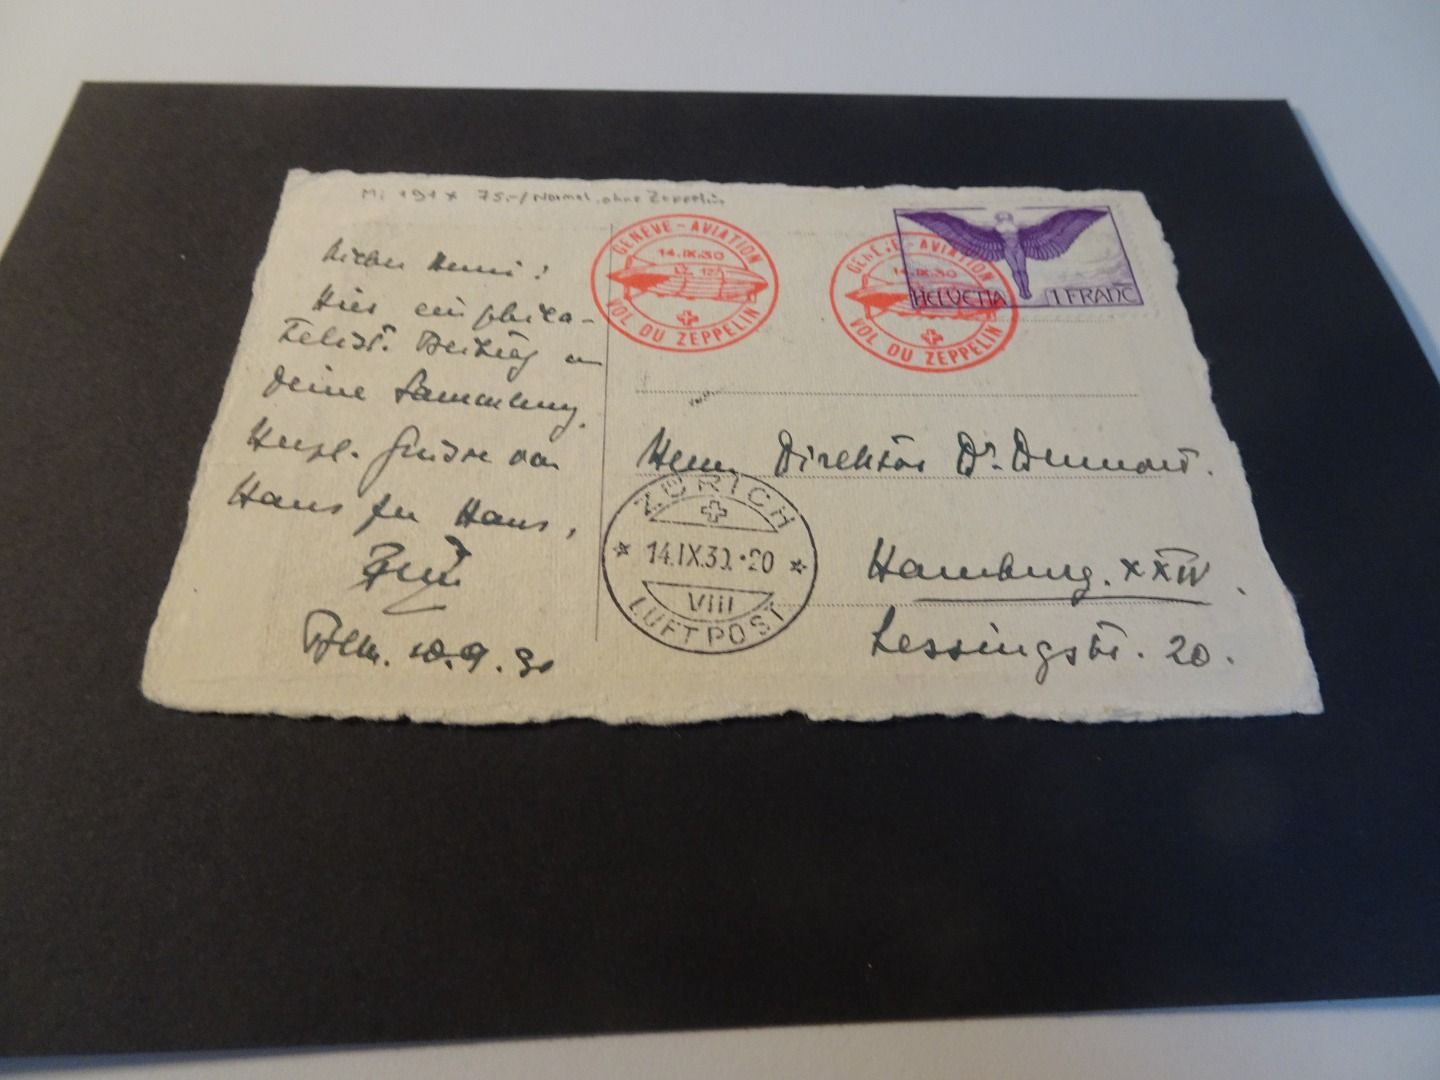 Mi 191 x 75,-/ Normal, ohne Zeppelin
GENÈVE - AVIATION
14.IX.30
LZ 127
VOL DU ZEPPELIN
GENÈVE - AVIATION
14.IX.30
VOL DU ZEPPELIN
HELVETIA 1 FRANC
Hier ein phila-
telist. Beitrag an
Deine Sammlung.
Herzl. Grüsse von
Haus zu Haus,
10.9.30
Herrn Direktor Dr.
Hamburg. XXIV.
Lessingstr. 20.
ZÜRICH
14.IX.30.·20
VIII
LUFTPOST